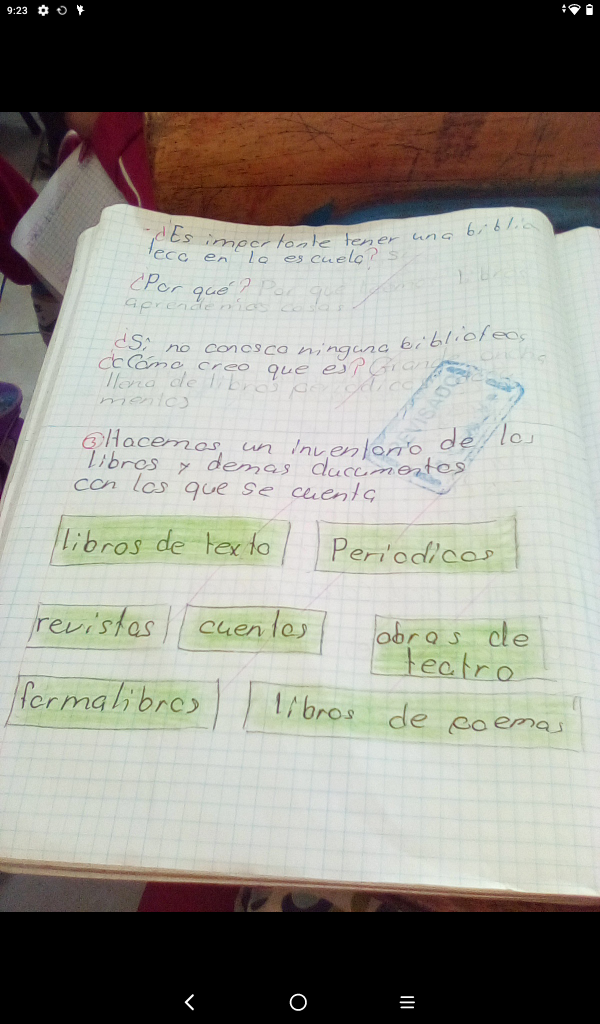 9:23
-¿Es importante tener una biblio
teca en la escuela? si
¿Por qué? Por que
aprendemos cosas
¿Si no conosco ninguna biblioteca
¿Cómo creo que es? Grande
llena de libros periodicos
mentos
③Hacemos un inventario de los
libros y demas ducumentos
con los que se cuenta
libros de texto Periodicos
revistas cuentos obras de
teatro
formalibros libros de poemas